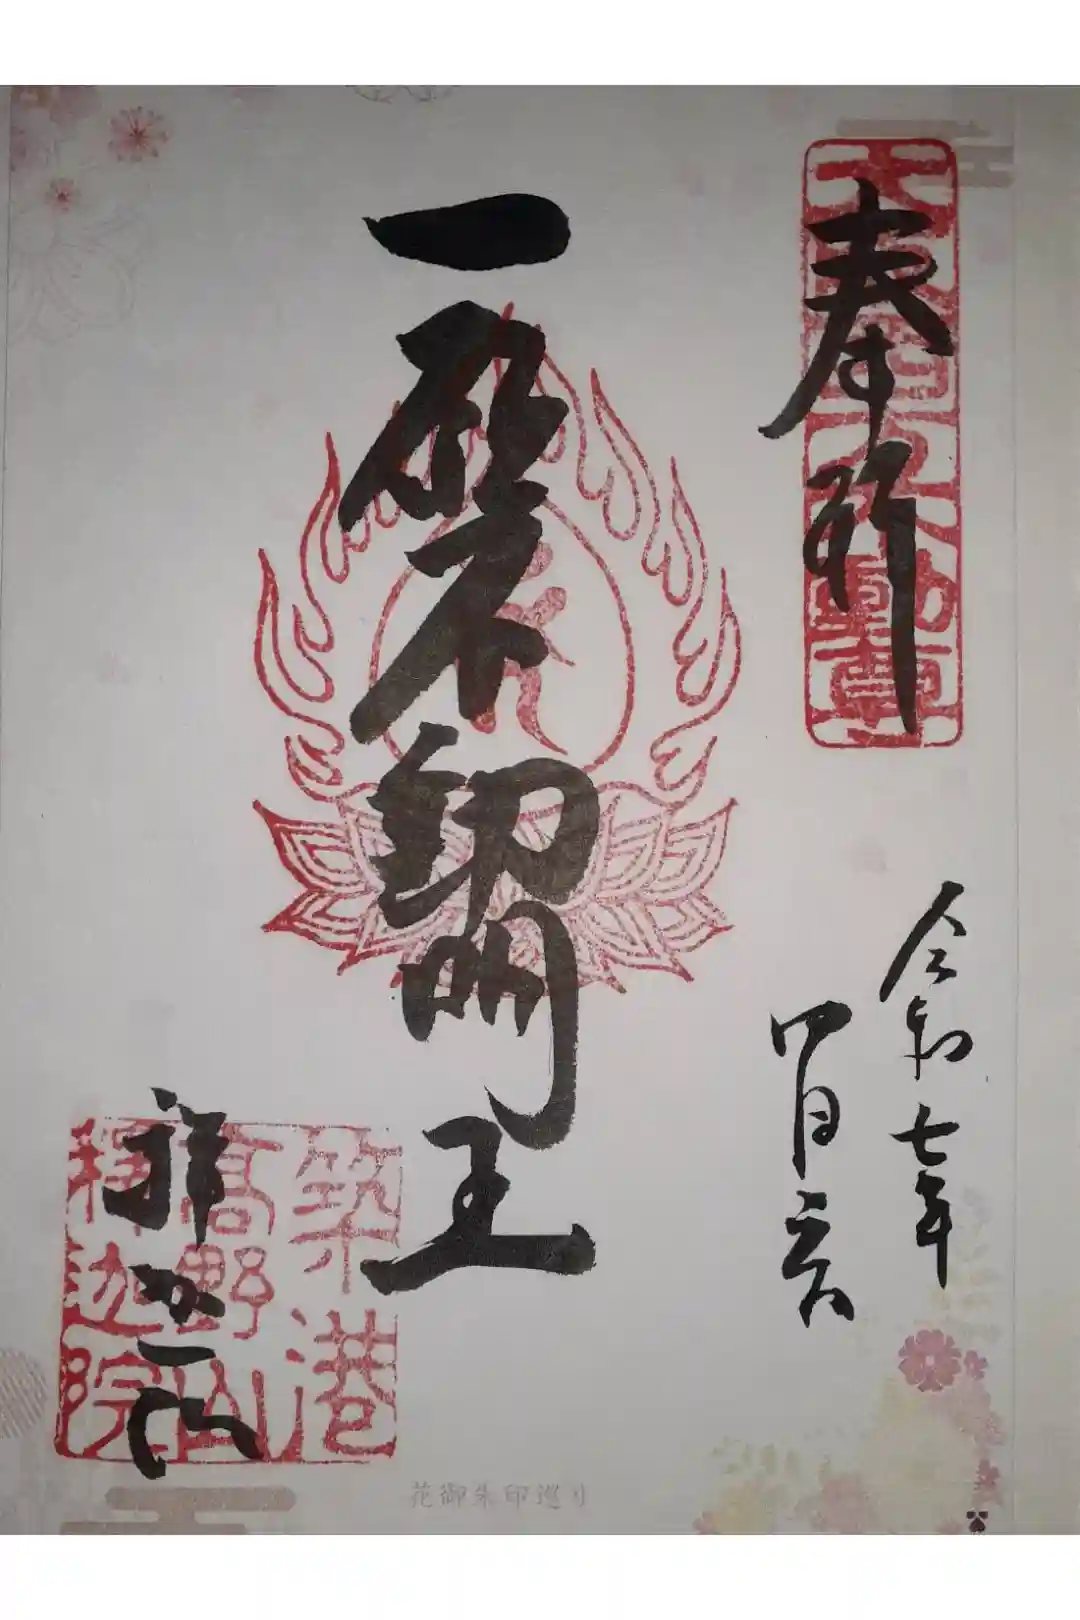 奉拝
令和七年
四月六日
一願不動明王
釈迦院
築港
高野山
釋迦院
花御朱印巡り